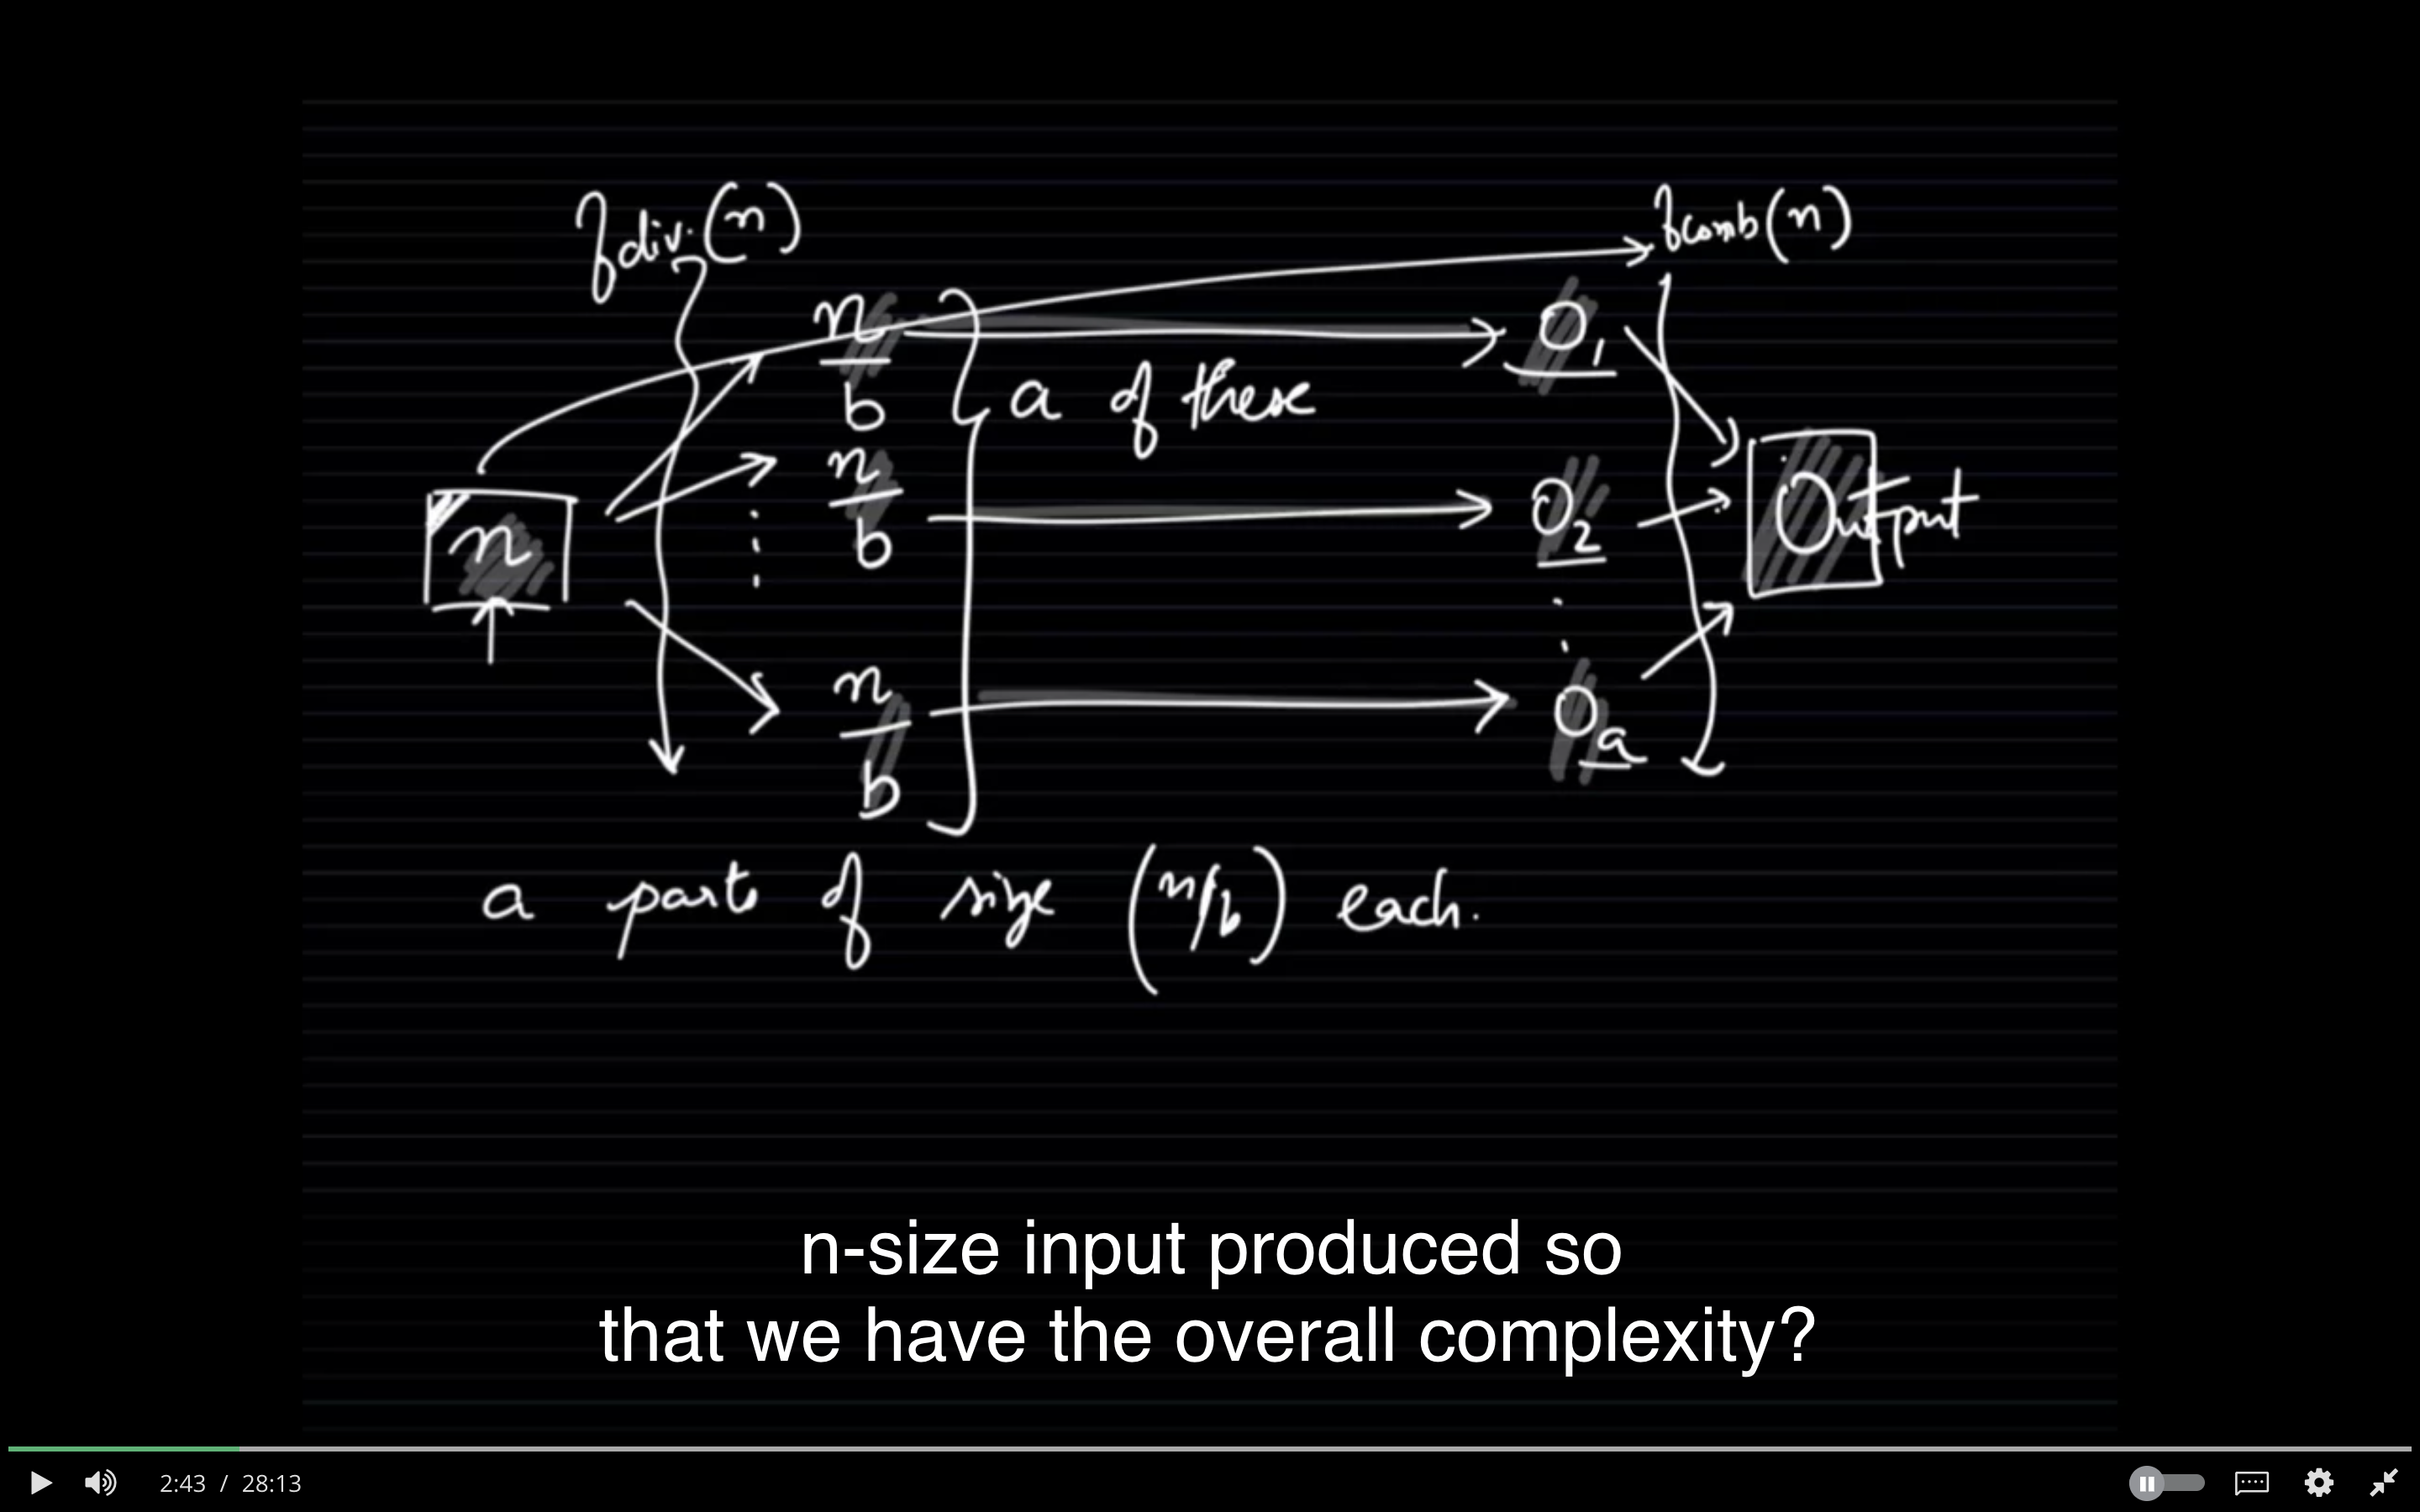 fdiv.(n)
fcomb(n)
n/b
a of these
O1
n/b
O2
n
Output
n/b
Oa
a parts of size (n/b) each.
n-size input produced so
that we have the overall complexity?
2:43 / 28:13